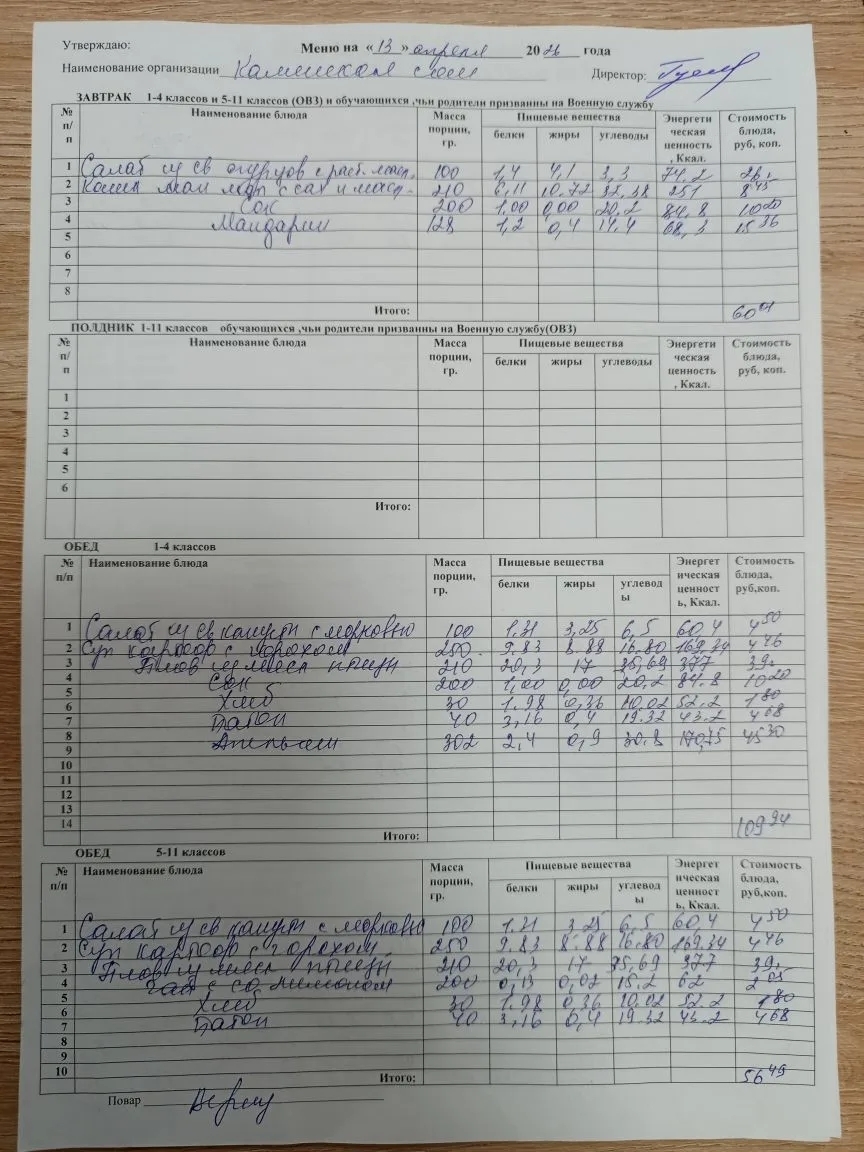 Утверждаю: Меню на «13» апреля 2026 года
Наименование организации Каменская сош Директор:
ЗАВТРАК 1-4 классов и 5-11 классов (ОВЗ) и обучающихся ,чьи родители призванны на Военную службу
№ п/п Наименование блюда Масса порции, гр. Пищевые вещества Энергетическая ценность, Ккал. Стоимость блюда, руб, коп.
белки жиры углеводы
1 Салат из св огурцов с раст. масл. 100 1,4 4,1 3,3 74,2 26,
2 Каша ман мол с сах и масл. 210 6,11 10,72 32,38 251 8 45
3 Сок 200 1,00 0,00 20,2 84,8 10 20
4 Мандарин 128 1,2 0,4 14,4 68,3 15 36
5
6
7
8
Итого: 60 01
ПОЛДНИК 1-11 классов обучающихся ,чьи родители призванны на Военную службу(ОВЗ)
№ п/п Наименование блюда Масса порции, гр. Пищевые вещества Энергетическая ценность, Ккал. Стоимость блюда, руб, коп.
белки жиры углеводы
1
2
3
4
5
6
Итого:
ОБЕД 1-4 классов
№ п/п Наименование блюда Масса порции, гр. Пищевые вещества Энергетическая ценность, Ккал. Стоимость блюда, руб,коп.
белки жиры углеводы
1 Салат из св капусты с морковью 100 1.31 3,25 6,5 60,4 4 50
2 Суп картоф с горохом 250 9.83 8.88 16.80 169,34 4 46
3 Плов из мяса птицы 210 20,3 17 35,69 377 39,
4 Сок 200 1,00 0,00 20,2 84.8 10 20
5 Хлеб 30 1.98 0,36 10.02 52.2 1 80
6 Батон 40 3,16 0,4 19.32 43.2 4 68
7 Апельсин 302 2,4 0,9 30,8 170,75 45 30
8
9
10
11
12
13
14
Итого: 109 94
ОБЕД 5-11 классов
№ п/п Наименование блюда Масса порции, гр. Пищевые вещества Энергетическая ценность, Ккал. Стоимость блюда, руб,коп.
белки жиры углеводы
1 Салат из св капусты с морковью 100 1.31 3.25 6,5 60,4 4 50
2 Суп картоф с горохом 250 9.83 8.88 16.80 169.34 4 46
3 Плов из мяса птицы 210 20,3 17 35,69 377 39,
4 Чай с со лимоном 200 0,13 0,02 15.2 62 2 05
5 Хлеб 30 1.98 0,36 10.02 52.2 1 80
6 Батон 40 3,16 0,4 19.32 43.2 4 68
7
8
9
10
Итого: 56 49
Повар